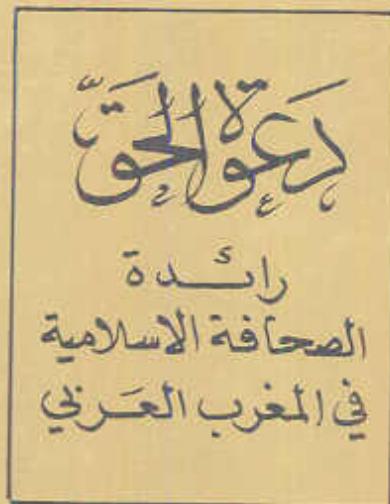 دعوة الحق
رائدة
الصحافة الاسلامية
في المغرب العربي